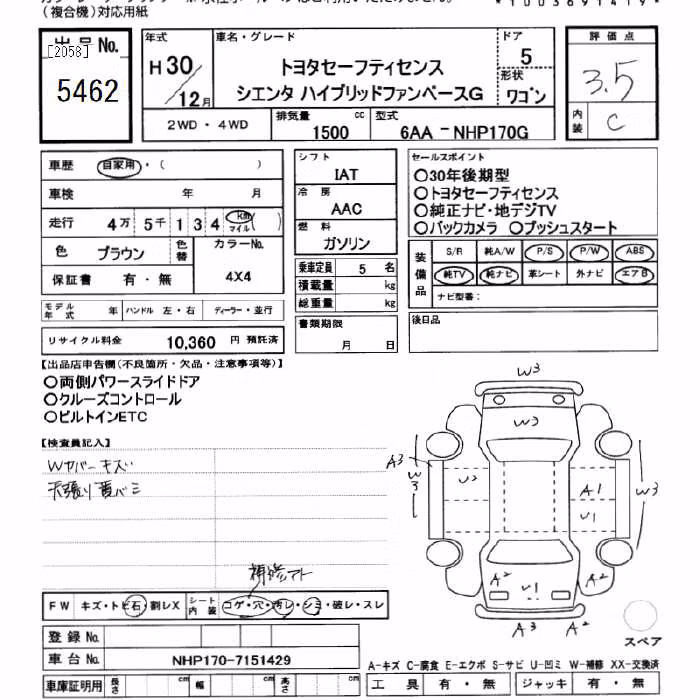 (複合機)対応用紙
*1003691419*
出品No.
[2058]
5462
年式
H30/12月
車名・グレード
トヨタセーフティセンス
シエンタ ハイブリッドファンベースG
ドア
5
形状
ワゴン
評価点
3.5
内装
C
2WD・4WD
排気量
1500 cc
型式
6AA-NHP170G
車歴 自家用・( )
車検 年 月
走行 4万 5千 1 3 4 km マイル ( )
色 ブラウン 色替 カラーNo.
保証書 有・無 4X4
モデル年式 年 ハンドル 左・右 ディーラー・並行
リサイクル料金 10,360 円 預託済
シフト
IAT
冷房
AAC
燃料
ガソリン
乗車定員 5 名
積載量 kg
総重量 kg
書類期限
月 日
セールスポイント
○30年後期型
○トヨタセーフティセンス
○純正ナビ・地デジTV
○バックカメラ ○プッシュスタート
装備品
S/R 純A/W P/S P/W ABS
純TV 純ナビ 革シート 外ナビ エアB
ナビ型番:
後日品
【出品店申告欄(不良箇所・欠品・注意事項等)】
○両側パワースライドドア
○クルーズコントロール
○ビルトインETC
【検査員記入】
Wカバーキズ
天張り黄バミ
補修アト
FW キズ・トビ石・割レX シート内装 コゲ・穴・汚レ・シミ・破レ・スレ
登録No.
車台No. NHP170-7151429
車庫証明用 長さ cm 幅 cm 高さ cm
W3
W3
A3
W3
U2
A1
U1
W3
A2
U1
A2
A3
A2
スペア
A-キズ C-腐食 E-エクボ S-サビ U-凹ミ W-補修 XX-交換済
工具 有・無 ジャッキ 有・無